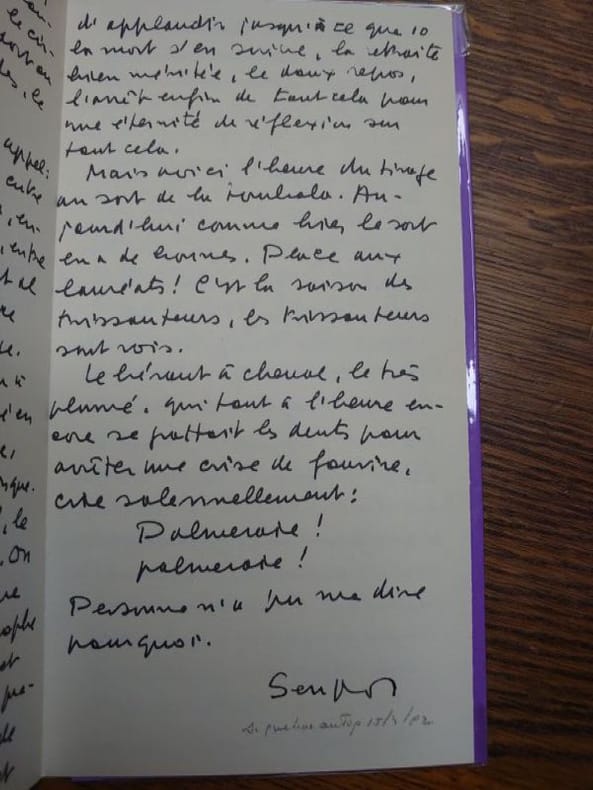 d'applaudir jusqu'à ce que 10
la mort s'en suive, la retraite
bien méritée, le doux repos,
l'arrêt enfin de tout cela pour
une éternité de réflexion sur
tout cela.
Mais voici l'heure du tirage
au sort de la tombola. Au-
jourd'hui comme hier le sort
en a de bonnes. Place aux
lauréats ! C'est la saison des
, les
sont rois.
Le héraut à cheval, le très
plumé, qui tout à l'heure en-
core se grattait les dents pour
arrêter une crise de fourire,
crie solennellement :
Palmeraie !
palmeraie !
Personne n'a pu me dire
pourquoi.